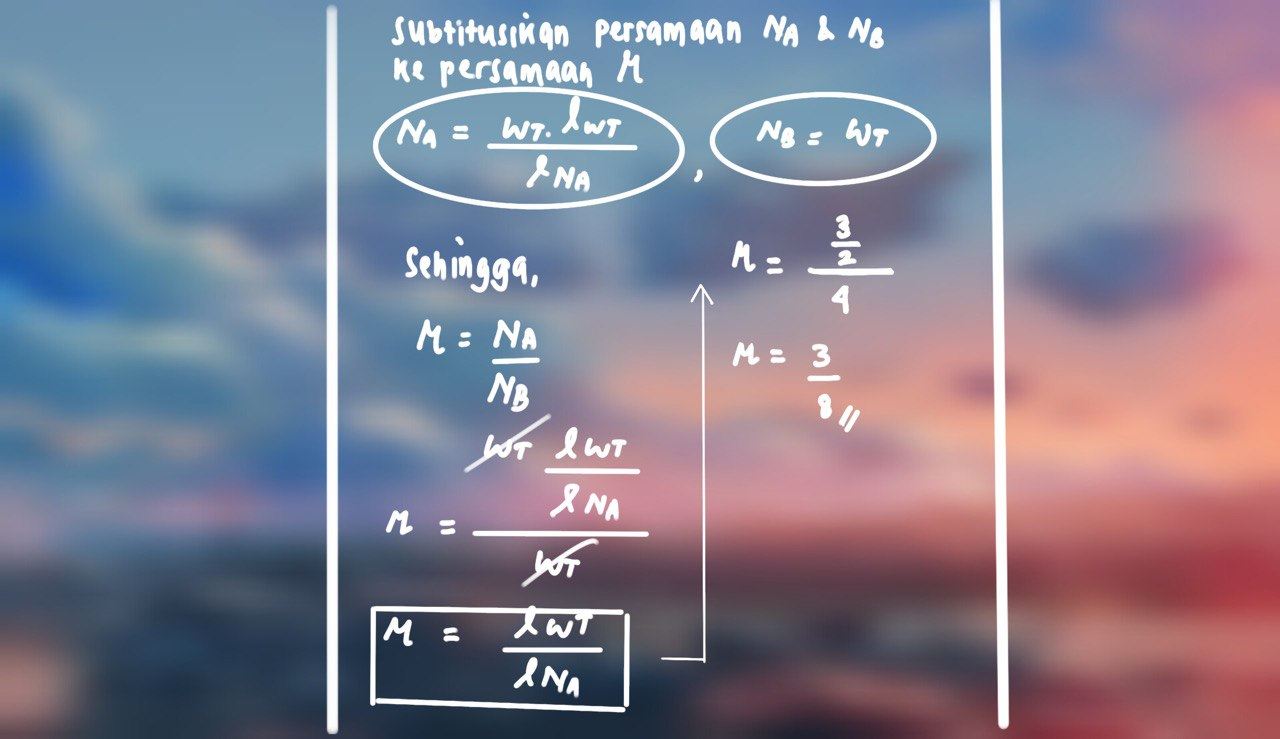 Subtitusikan persamaan NA & NB
ke persamaan M
NA = WT. lWT / lNA , NB = WT
Sehingga,
M = NA / NB
M = WT lWT / lNA / WT
M = lWT / lNA
M = 3/2 / 4
M = 3 / 8 //